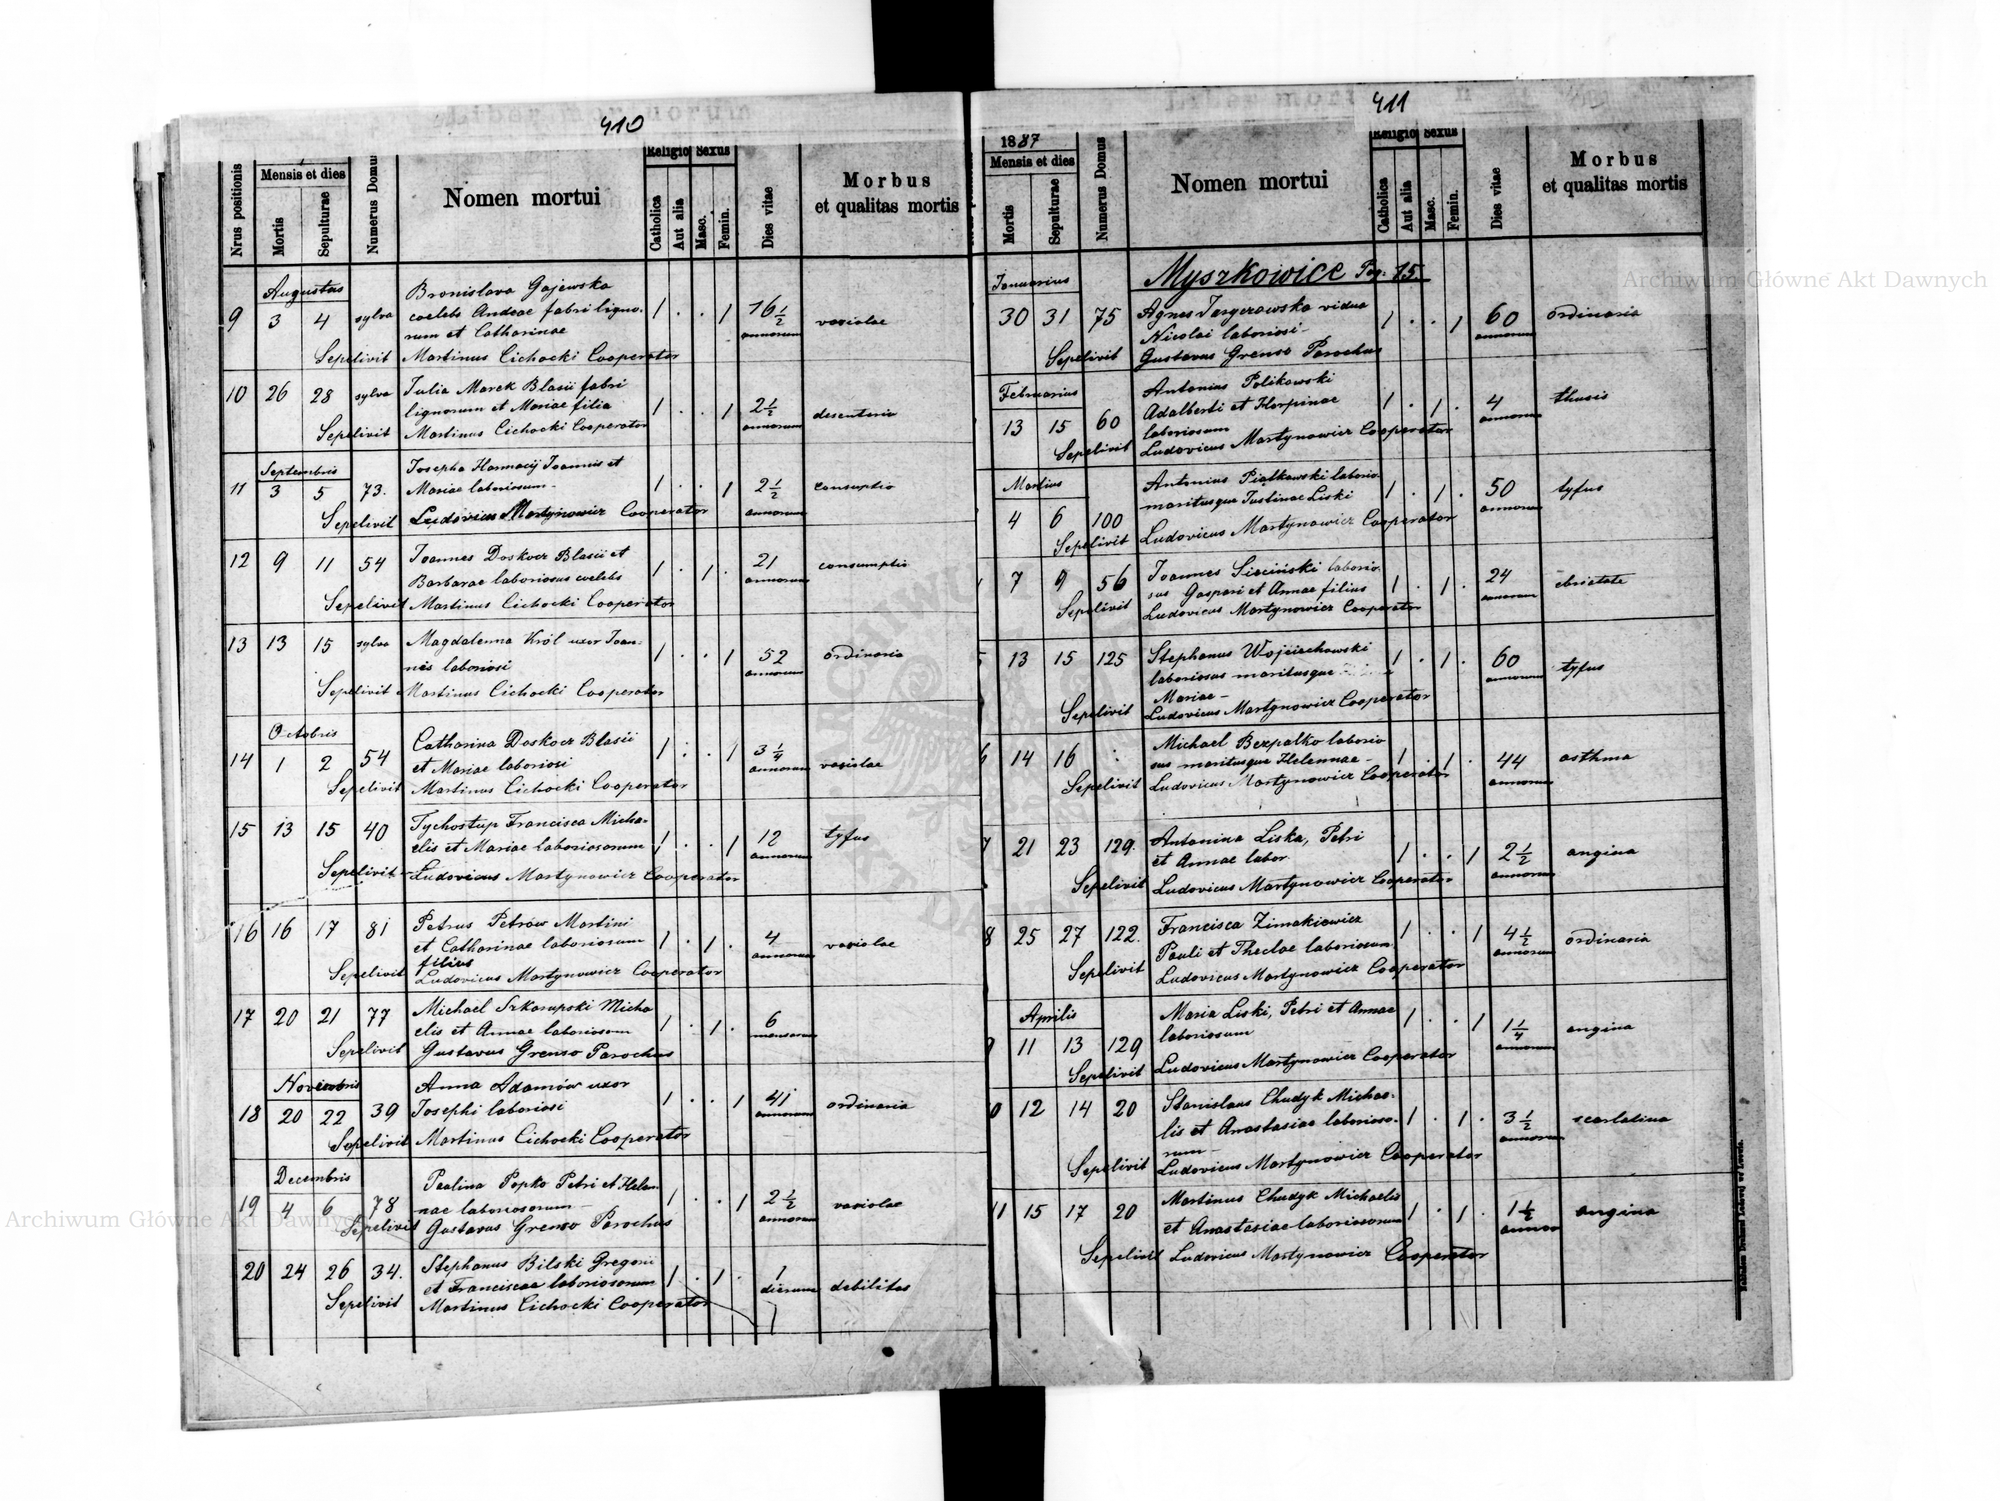 410
Nrus positionis
Mensis et dies
Mortis
Sepulturae
Numerus Domus
Nomen mortui
Religio
Catholica
Aut alia
Sexus
Masc.
Femin.
Dies vitae
Morbus
et qualitas mortis
Augustus
Bronislava Gajewska
9 3 4 sylva coelebs Andeae fabri ligno- 1 . . 1 16 1/2 variolae
rum et Catharinae annorum
Sepelivit Martinus Cichocki Cooperator
10 26 28 sylva Julia Marek Blasii fabri
lignorum et Mariae filia 1 . . 1 2 1/2 desenteria
Sepelivit Martinus Cichocki Cooperator annorum
Septembris
Josepha Harmacij Joannis et
11 3 5 73. Mariae laboriosum- 1 . . 1 2 1/2 consuptio
Sepelivit Ludovicus Martynowicz Cooperator annorum
12 9 11 54 Joannes Doskocz Blasii et 21 consumptio
Barbarae laboriosus coelebs 1 . 1 . annorum
Sepelivit Martinus Cichocki Cooperator
13 13 15 sylva Magdalenna Król uxor Joan-
nis laboriosi 1 . . 1 52 ordinaria
Sepelivit Martinus Cichocki Cooperator annorum
Octobris
14 1 2 54 Catharina Doskocz Blasii 1 . . 1 3 1/4
et Mariae laboriosi annorum variolae
Sepelivit Martinus Cichocki Cooperator
15 13 15 40 Tychostup Francisca Micha-
elis et Mariae laboriosorum 1 . . 1 12 tyfus
Sepelivit Ludovicus Martynowicz Cooperator annorum
16 16 17 81 Petrus Petrów Martini
et Catharinae laboriosum 1 . 1 . 4 variolae
filius annorum
Sepelivit Ludovicus Martynowicz Cooperator
17 20 21 77 Michael Micha
elis et Annae laboriosom 1 . 1 . 6
Sepelivit Gustavus Grenso Parochus mensorum
Novembris
Anna Adamów uxor
18 20 22 39 Josephi laboriosi 1 . . 1 41 ordinaria
Sepelivit Martinus Cichocki Cooperator annorum
Decembris
Paulina Popko Petri et Helen
19 4 6 78 nae laboriosorum- 1 . . 1 2 1/2 variolae
Sepelivit Gustavus Grenso Parochus annorum
20 24 26 34. Stephanus Bilski Gregorii
et Franciscae laboriosorum 1 . 1 . 1 debilitas
Sepelivit Martinus Cichocki Cooperator dierum
411
1887
Mensis et dies
Mortis
Sepulturae
Numerus Domus
Nomen mortui
Religio
Catholica
Aut alia
Sexus
Masc.
Femin.
Dies vitae
Morbus
et qualitas mortis
Januarius Myszkowice Pag. 15.
30 31 75 Agnes vidua 60 ordinaria
Nicolai laboriosi- 1 . . 1 annorum
Sepelivit Gustavus Grenso Parochus
Februarius Antonius Polikowski
Adalberti et Horpinae 1 . 1 . 4 thusis
13 15 60 laboriosum annorum
Sepelivit Ludovicus Martynowicz Cooperator
Martius Antonius Piatkowski laborio-
maritusque Justinae Liski 1 . 1 . 50 tyfus
4 6 100 annorum
Sepelivit Ludovicus Martynowicz Cooperator
7 9 56 Joannes Siciński laborio- 24 ebrietate
sus Gaspari et Annae filius 1 . 1 . annorum
Sepelivit Ludovicus Martynowicz Cooperator
13 15 125 Stephanus Wojciechowski 60
laboriosus maritusque 1 . 1 . annorum tyfus
Mariae-
Sepelivit Ludovicus Martynowicz Cooperator
6 14 16 Michael Bezpalko laborio
sus maritusque Helennae- 1 . 1 . 44 asthma
Sepelivit Ludovicus Martynowicz Cooperator annorum
7 21 23 129. Antonina Liska, Petri
et Annae labor. 1 . . 1 2 1/2 angina
Sepelivit Ludovicus Martynowicz Cooperator annorum
8 25 27 122. Francisca Zimakiewicz 1 . . 1 4 1/2 ordinaria
Pauli et Theclae laboriosum annorum
Sepelivit Ludovicus Martynowicz Cooperator
Aprilis Maria Liski, Petri et Annae
laboriosum 1 . . 1 1 1/4 angina
9 11 13 129 annorum
Sepelivit Ludovicus Martynowicz Cooperator
0 12 14 20 Stanislaus Chudyk Michae-
lis et Anastasiae laborioso- 1 . 1 . 3 1/2 scarlatina
rum- annorum
Sepelivit Ludovicus Martynowicz Cooperator
11 15 17 20 Martinus Chudyk Michaelis
et Anastasiae laboriosorum 1 . 1 . 1 1/2 angina
Sepelivit Ludovicus Martynowicz Cooperator
Archiwum Główne Akt Dawnych
Archiwum Główne Akt Dawnych